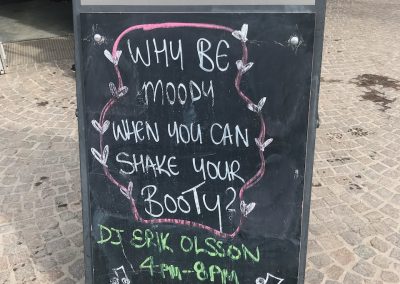 WHY BE
MOODY
WHEN YOU CAN
SHAKE YOUR
BOOTY?
DJ ERIK OLSSON
4PM-8PM